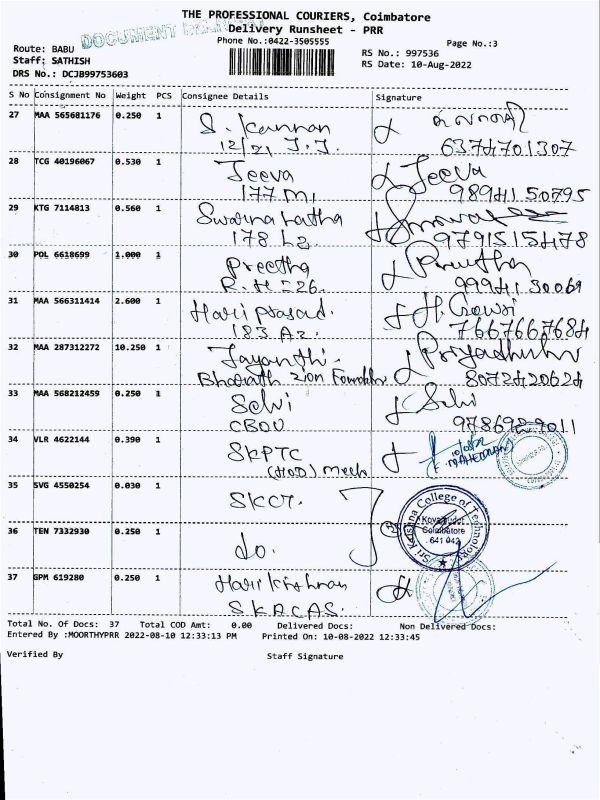 THE PROFESSIONAL COURIERS, Coimbatore
DOCUMENT
Delivery Runsheet - PRR
Phone No.:0422-3505555
Page No.:3
Route: BABU
Staff: SATHISH
DRS No.: DCJB99753603
RS No.: 997536
RS Date: 10-Aug-2022
S No Consignment No Weight PCS Consignee Details Signature
27 MAA 565681176 0.250 1 S. Kannan
12/21 J.J. 6374701307
28 TCG 40196067 0.530 1 Jeeva Jeeva
177 M1 98941 50795
29 KTG 7114813 0.560 1 Swarna Latha
178 L2. 9791515478
30 POL 6618699 1.000 1 Preetha Preetha
R.H 226. 99941 30069
31 MAA 566311414 2.600 1 Hari prasad. H. Gowri
183 A2. 7667667684
32 MAA 287312272 10.250 1 Jayanthi.
Bharath zion 8072420624
33 MAA 568212459 0.250 1 Selvi Selvi
CBOU
34 VLR 4622144 0.390 1 SKPTC
(HOD) Mech
35 SVG 4550254 0.030 1 SKCT.
Sri Krishna College of Technology
Kovaipudur
Coimbatore
641 042
36 TEN 7332930 0.250 1 do.
37 GPM 619280 0.250 1 Hari Krishnan
SKACAS.
Total No. Of Docs: 37 Total COD Amt: 0.00 Delivered Docs: Non Delivered Docs:
Entered By :MOORTHYPRR 2022-08-10 12:33:13 PM Printed On: 10-08-2022 12:33:45
Verified By Staff Signature